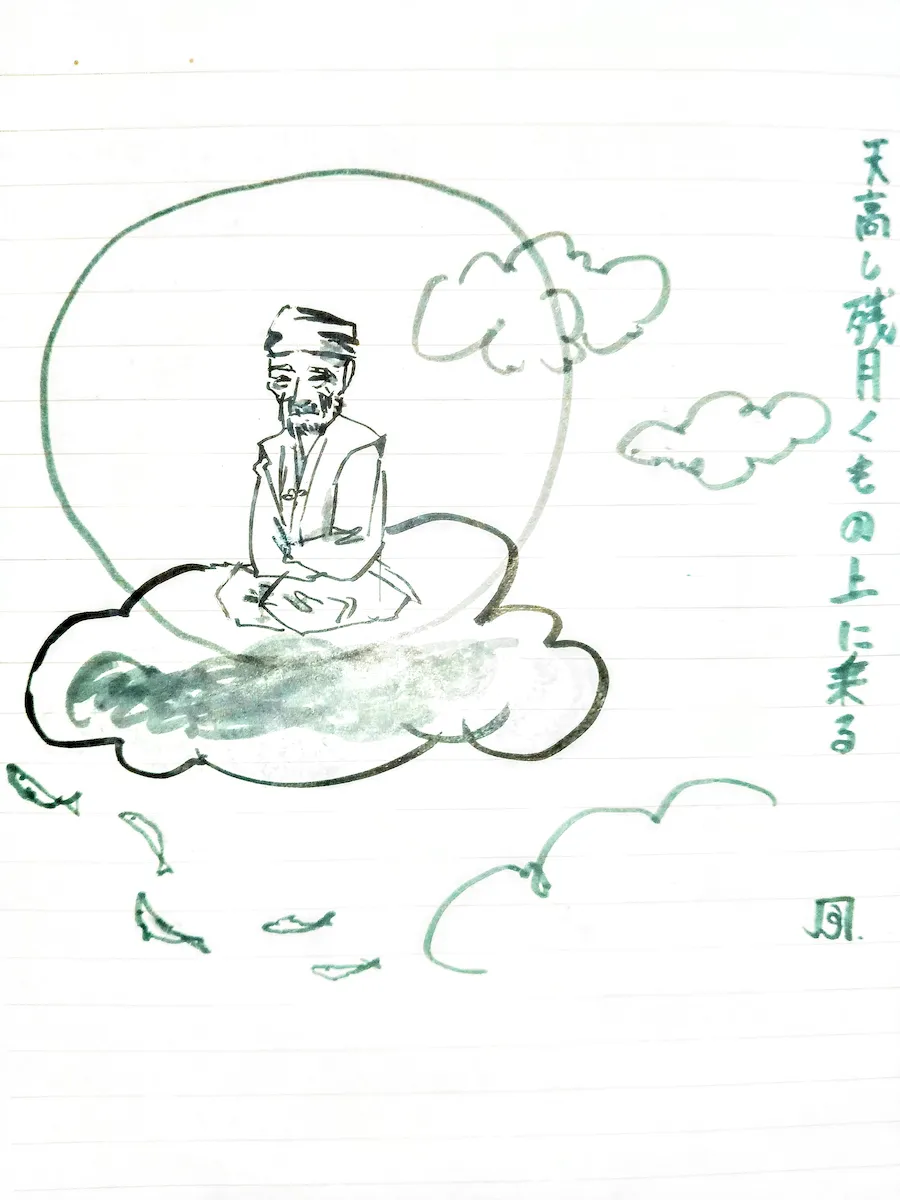 天高し残月くもの上に乗る